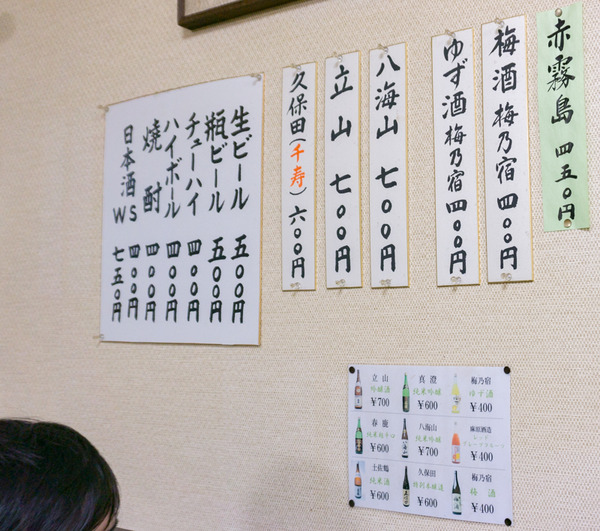 赤霧島 四五〇円
梅酒 梅乃宿 四〇〇円
ゆず酒 梅乃宿 四〇〇円
八海山 七〇〇円
立山 七〇〇円
久保田(千寿) 六〇〇円
生ビール 五〇〇円
瓶ビール 五〇〇円
チューハイ 四〇〇円
ハイボール 四〇〇円
焼酎 四〇〇円
日本酒 S 四〇〇円
W 七五〇円
立山
吟醸酒
¥700
真澄
純米吟醸
¥600
梅乃宿
ゆず酒
¥400
春鹿
純米超辛口
¥600
八海山
純米吟醸
¥700
麻原酒造
¥400
土佐鶴
純米酒
¥600
久保田
特別本醸造
¥600
梅乃宿
梅酒
¥400